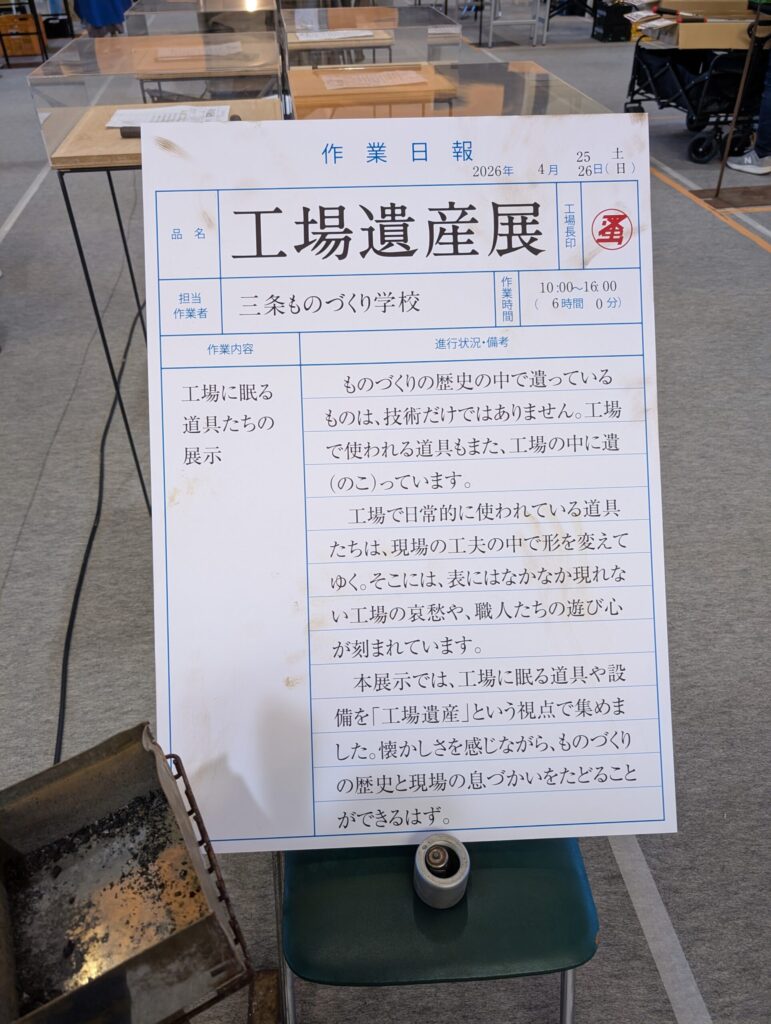 作業日報
2026年 4月 25 26日(土 日)
品名
工場遺産展
工場長印
担当
作業者
三条ものづくり学校
作業時間
10:00~16:00
(6時間 0分)
作業内容
進行状況・備考
工場に眠る
道具たちの
展示
ものづくりの歴史の中で遺っている
ものは、技術だけではありません。工場
で使われる道具もまた、工場の中に遺
(のこ)っています。
工場で日常的に使われている道具
たちは、現場の工夫の中で形を変えて
ゆく。そこには、表にはなかなか現れな
い工場の哀愁や、職人たちの遊び心
が刻まれています。
本展示では、工場に眠る道具や設
備を「工場遺産」という視点で集めま
した。懐かしさを感じながら、ものづくり
の歴史と現場の息づかいをたどること
ができるはず。